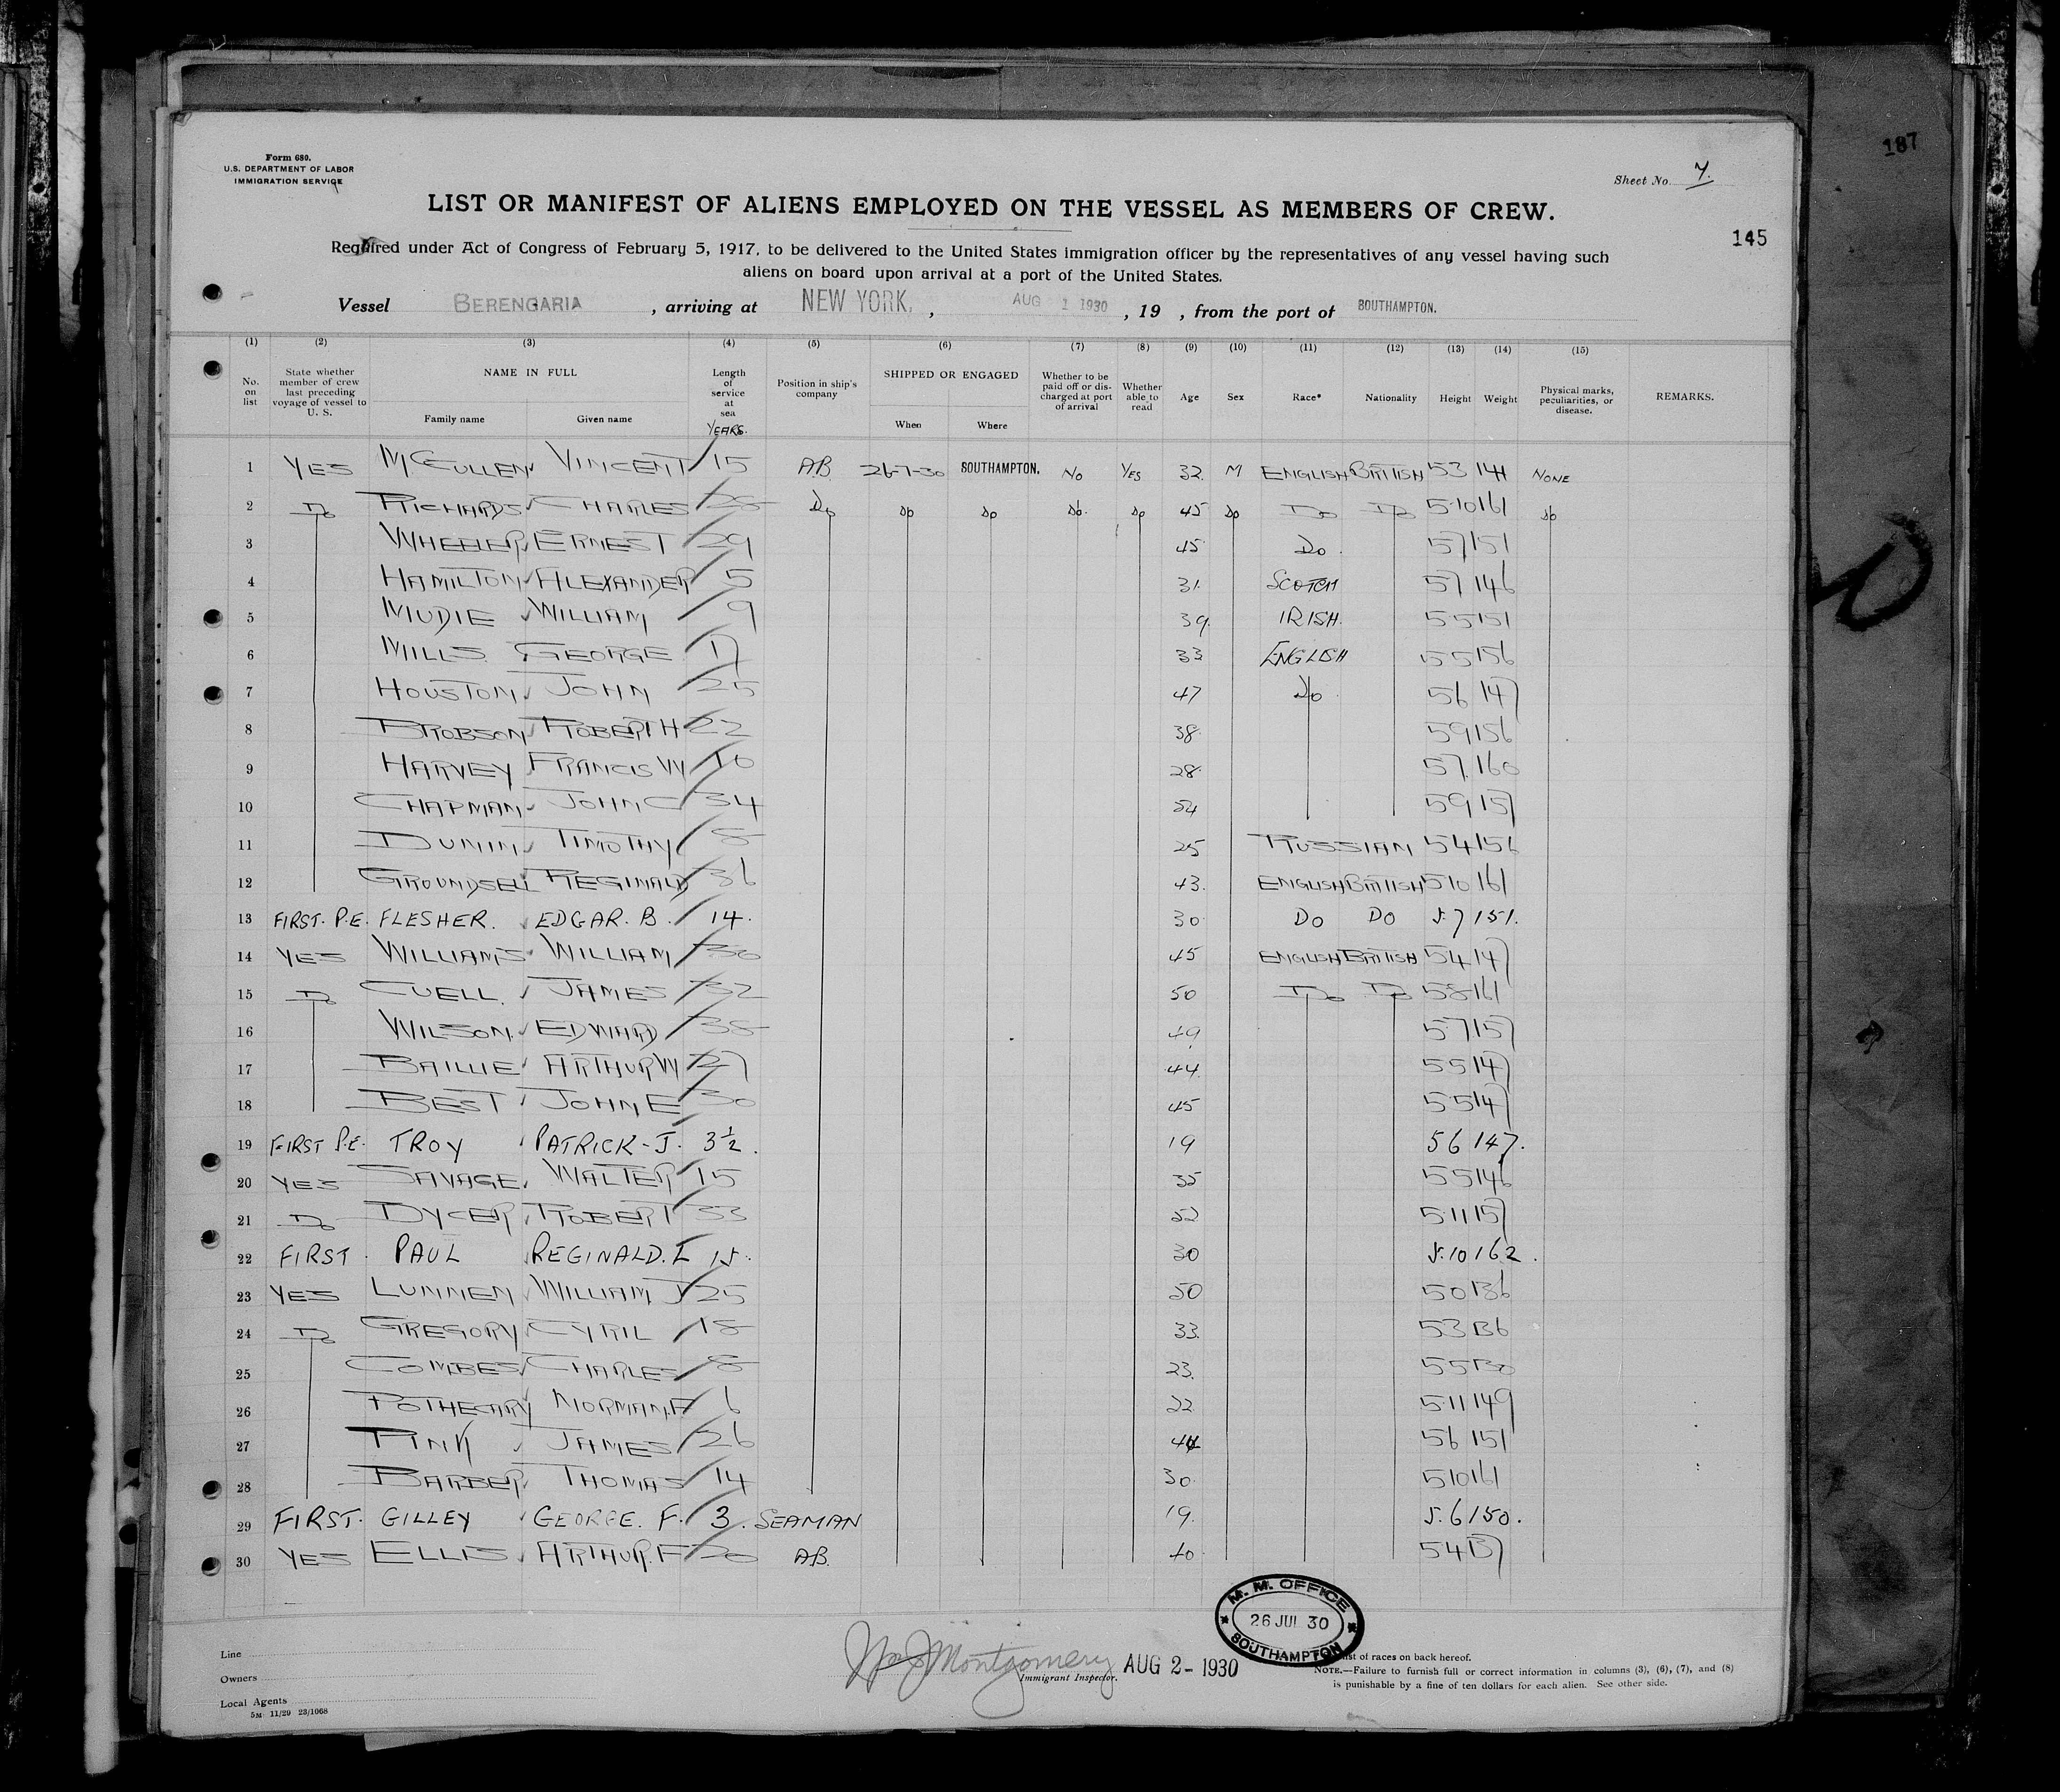 187
Form 680.
U.S. DEPARTMENT OF LABOR
IMMIGRATION SERVICE
Sheet No. 7.
LIST OR MANIFEST OF ALIENS EMPLOYED ON THE VESSEL AS MEMBERS OF CREW.
145
Required under Act of Congress of February 5, 1917, to be delivered to the United States immigration officer by the representatives of any vessel having such
aliens on board upon arrival at a port of the United States.
Vessel BERENGARIA , arriving at NEW YORK, , AUG 1 1930 , 19 , from the port of SOUTHAMPTON.
(1) (2) (3) (4) (5) (6) (7) (8) (9) (10) (11) (12) (13) (14) (15)
No. on list State whether member of crew last preceding voyage of vessel to U. S. NAME IN FULL Family name Given name Length of service at sea YEARS. Position in ship's company SHIPPED OR ENGAGED When Where Whether to be paid off or discharged at port of arrival Whether able to read Age Sex Race* Nationality Height Weight Physical marks, peculiarities, or disease. REMARKS.
1 YES McCULLEN VINCENT 15 A.B. 26-7-30 SOUTHAMPTON. NO YES 32 M ENGLISH BRITISH 53 141 NONE
2 Do RICHARDS CHARLES 28 Do Do Do Do Do 45 Do Do Do 5-10 161 Do
3 WHEELER ERNEST 29 45 Do 57 151
4 HAMILTON ALEXANDER 5 31 SCOTCH 57 146
5 MUDIE WILLIAM 9 39 IRISH. 55 151
6 MILLS GEORGE 17 33 ENGLISH 55 156
7 HOUSTON JOHN 25 47 Do 56 147
8 BROBSON ROBERT H 22 38 59 156
9 HARVEY FRANCIS W 10 28 57 160
10 CHAPMAN JOHN C 34 54 59 157
11 DUNIN TIMOTHY 8 25 RUSSIAN 54 156
12 GROUNDSELL REGINALD 36 43 ENGLISH BRITISH 510 161
13 FIRST. P.E. FLESHER. EDGAR. B. 14. 30 DO DO 5.7 151.
14 YES WILLIAMS WILLIAM 30 45 ENGLISH BRITISH 54 147
15 Do CUELL. JAMES 32 50 Do Do 58 161
16 WILSON EDWARD 35 49 57 157
17 BAILLIE ARTHUR W 27 44 55 147
18 BEST JOHN E 30 45 55 147
19 FIRST P.E. TROY PATRICK-J. 3½. 19 56 147.
20 YES SAVAGE WALTER 15 35 55 146
21 Do DYCER ROBERT 33 52 511 157
22 FIRST. PAUL REGINALD. 15. 30 5.10 162.
23 YES LUNNEN WILLIAM J 25 50 50 136
24 Do GREGORY CYRIL 18 33 53 136
25 COMBES CHARLES 8 23 55 130
26 POTHECARY NORMAN.F 6 22 511 149
27 PINK JAMES 26 44 56 151
28 BARBER THOMAS 14 30 510 161
29 FIRST. GILLEY GEORGE. F. 3. SEAMAN 19. 5.6 150.
30 YES ELLIS ARTHUR.F 20 A.B. 40 54 137
M. M. OFFICE
26 JUL 30
SOUTHAMPTON
Line
Owners
Local Agents
5M 11/29 23/1068
Montgomery
Immigrant Inspector.
AUG 2- 1930
list of races on back hereof.
NOTE.—Failure to furnish full or correct information in columns (3), (6), (7), and (8)
is punishable by a fine of ten dollars for each alien. See other side.